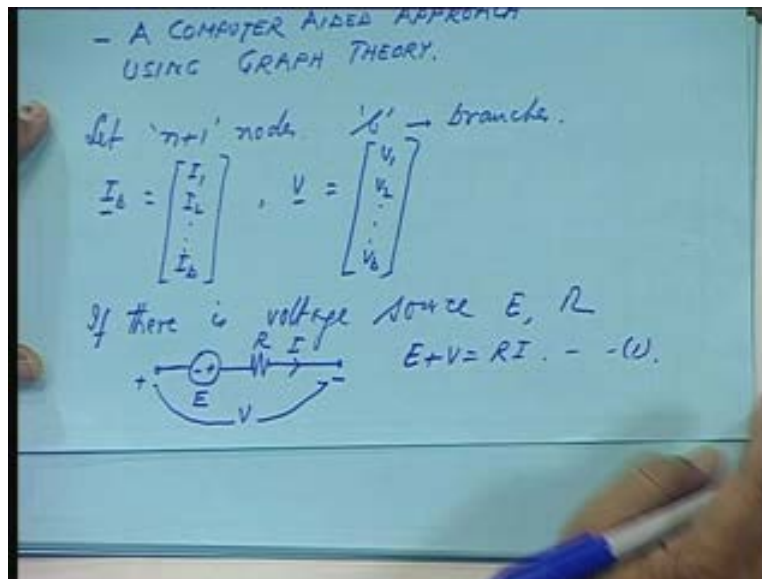 - A COMPUTER AIDED APPROACH
USING GRAPH THEORY.
Let 'n+1' nodes 'b' → branches.
I_b = [I_1 I_2 : I_b] , V = [V_1 V_2 : V_b]
If there is voltage source E, R
R I E+V = RI . - -(1).
+ - + -
E
V